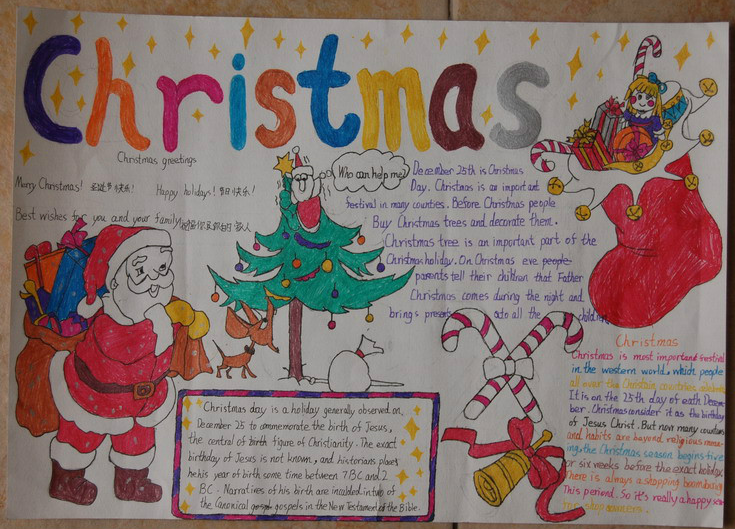 Christmas
Christmas greetings
Merry Christmas! 圣诞节快乐!
Happy holidays! 节日快乐!
Best wishes for you and your family
Who can help me?
December 25th is Christmas
Day. Christmas is an important
festival in many counties. Before Christmas people
Buy Christmas trees and decorate them.
Christmas tree is an important part of the
Christmas holiday. On Christmas eve people
parents tell their children that Father
Christmas comes during the night and
brings presents to all the children
Christmas day is a holiday generally observed on
December 25 to commemorate the birth of Jesus,
the central of birth figure of Christianity. The exact
birthday of Jesus is not known, and historians places
his year of birth some time between 7BC and 2
BC. Narratives of his birth are included in two of
the Canonical gospels in the New Testament of the Bible.
Christmas
Christmas is most important festival
in the western world. which people
all over the Christain countries
It is on the 25th day of each Decem-
ber. Christmas consider it as the birthday
of Jesus Christ. But now many countries
and habits are beyond religious
ing, the Christmas season begins five
or six weeks before the exact holiday
There is always a shopping boom during
This period. So it's really a happy